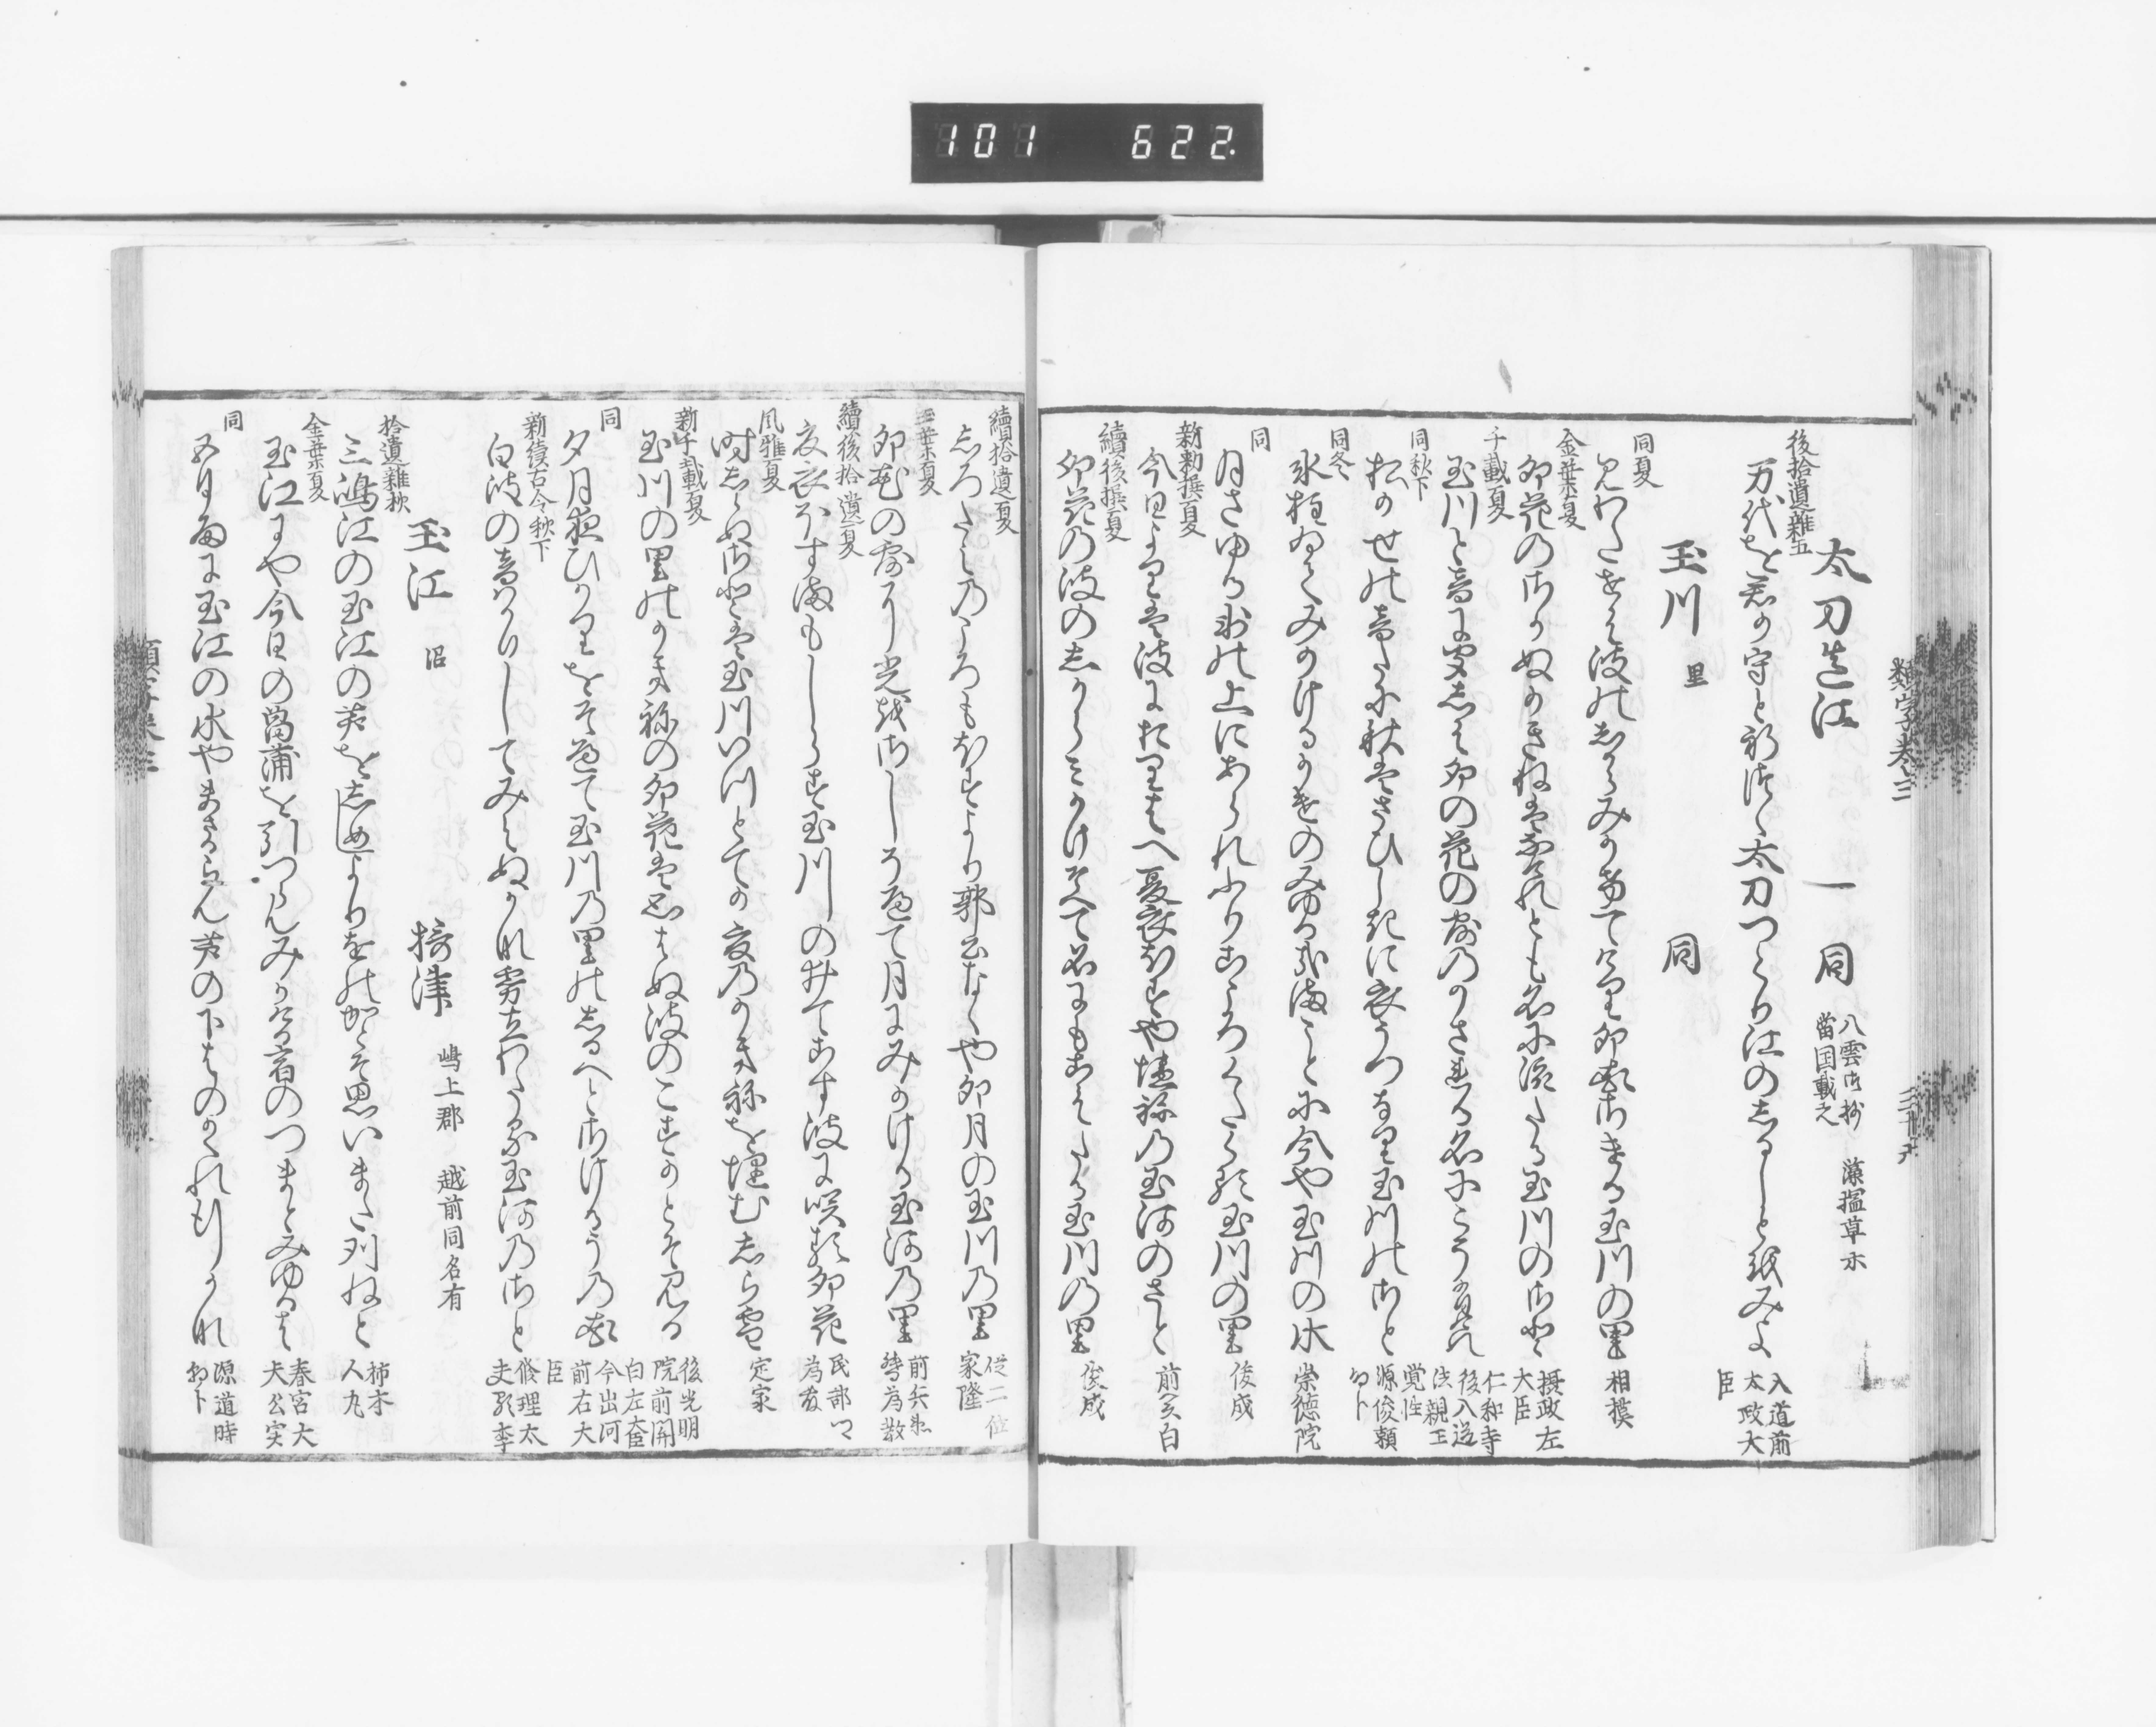 101 622.
類字巻三
三十九
太刀造江 一 同 八雲御抄 藻塩草亦
當国載之
後拾遺雑五
万代を君か守と祈つゝ太刀つくり江のしるしとを みよ 入道前
太政大
臣
玉川 里 同
同夏
見わたせは波のしからみかけてけり卯花さける玉川の里 相模
金葉夏
卯花のさかぬかきねはなけれとも名に流たる玉川のさと 摂政左
大臣
千載夏
玉川と音に聞しは卯の花の露のかされる名にこそ有けれ 仁和寺
後入道
法親王
覚性
同秋下
松かせの音たに秋はさひしきに衣うつなり玉川のさと 源俊頼
同冬
氷ゐてみつけるかけのみゆる哉まことに今や玉川の水 崇徳院
同
月さゆる氷の上にあられふり心くたくる玉川の里 俊成
新勅撰夏
今日よりは波におりはへ夏衣ほすや垣ねの玉河のさと 前関白
續後撰夏
卯花の波のしからみかけそへて名にもこえたる玉川の里 俊成
續拾遺夏
しろたへのころもほすより郭公なくや卯月の玉川の里 従二位
家隆
玉葉夏
卯花の露に光をさしそへて月にみかける玉河の里 前兵衛
督為教
續後拾遺夏
夏衣ほすかもしらす玉川の井てこす波に咲る卯花 民部卿
為藤
風雅夏
時しらぬ里は玉川いつとてか夏のかきねを埋むしら雪 定家
新千載夏
玉川の里のかきねの卯花はしらぬ波のこすかとそ見る 後光明
院前関
白左大臣
同
夕月夜ひかりをそへて玉川の里のしるへとさける卯の花 今出河
前右大
臣
新續古今秋下
白波の音はかりしてみえぬかな霧立わたる玉河のさと 修理太
夫顕季
玉江 沼 摂津 嶋上郡 越前同名有
拾遺雑秋
三嶋江の玉江の芦をしめしよりをのかとそ思いまた刈ねと 柿本
人丸
金葉夏
玉江にや今日の菖蒲を引つらんみかける宿のつまとみゆるは 春宮大
夫公実
同
五月雨に玉江の水やまさるらん芦の下はのかくれ行かな 源道時
朝臣